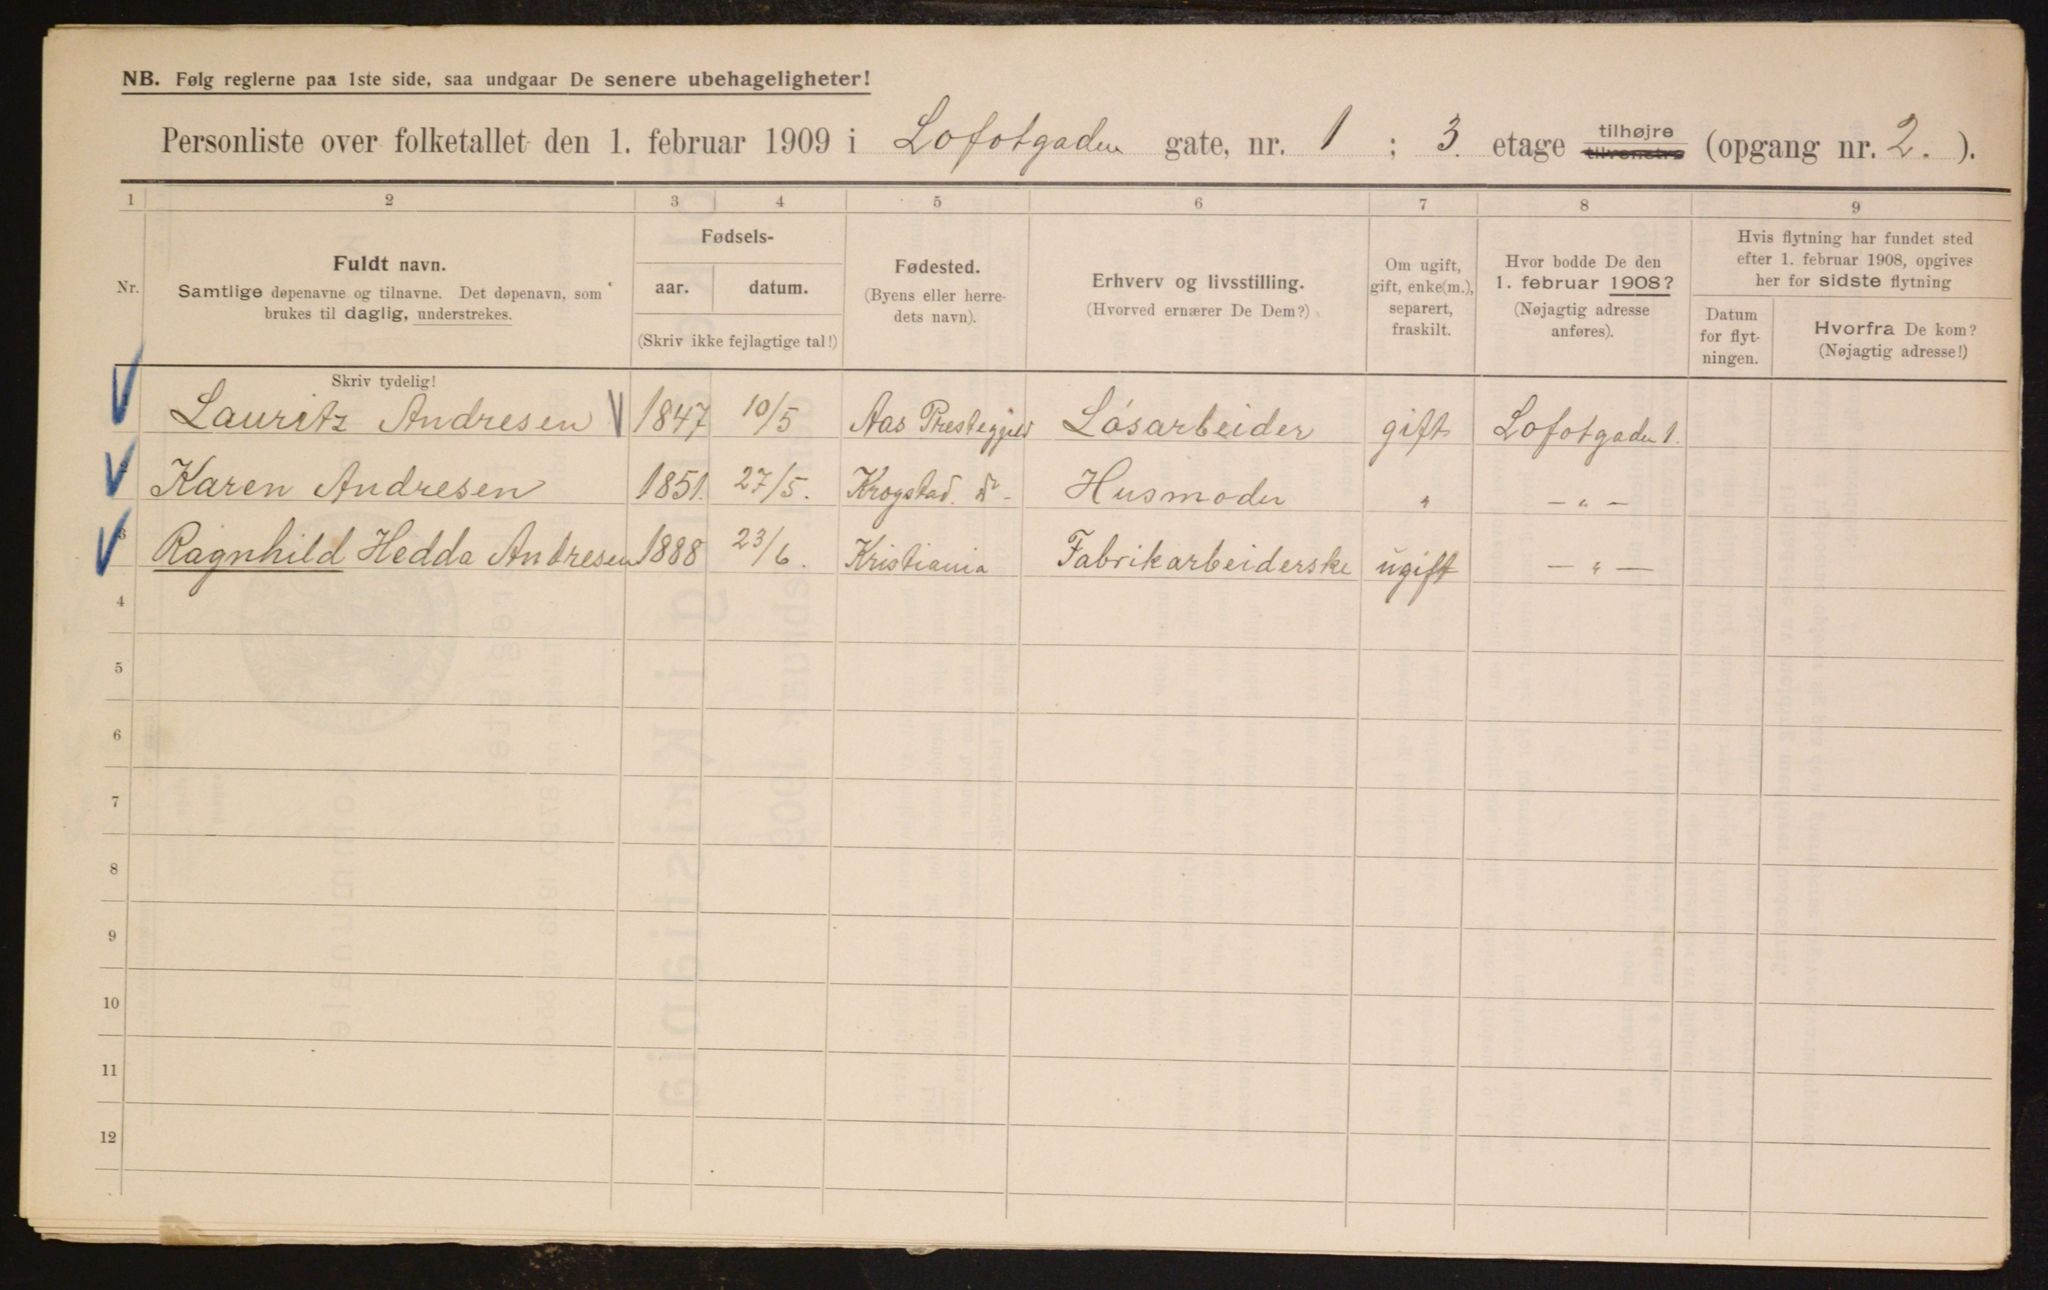 NB. Følg reglerne paa 1ste side, saa undgaar De senere ubehageligheter!
Personliste over folketallet den 1. februar 1909 i Lofotgaden gate, nr. 1 ; 3. etage tilhøjre tilvenstre (opgang nr. 2. ).
1 2 3 4 5 6 7 8 9
Nr.
Fuldt navn.
Samtlige døpenavne og tilnavne. Det døpenavn, som
brukes til daglig, understrekes.
Fødsels-
aar. datum.
(Skriv ikke fejlagtige tal!)
Fødested.
(Byens eller herre-
dets navn).
Erhverv og livsstilling.
(Hvorved ernærer De Dem?)
Om ugift,
gift, enke(m.),
separert,
fraskilt.
Hvor bodde De den
1. februar 1908?
(Nøjagtig adresse
anføres).
Hvis flytning har fundet sted
efter 1. februar 1908, opgives
her for sidste flytning
Datum
for flyt-
ningen.
Hvorfra De kom?
(Nøjagtig adresse!)
Skriv tydelig!
Lauritz Andresen 1847 10/5 Aas Prestegjeld Lósarbeider gift Lofotgaden 1.
Karen Andresen 1851. 27/5. Krogstad. do - Husmoder " — " —
3 Ragnhild Hedda Andresen 1888 23/6. Kristiania Fabrikarbeiderske ugift — " —
4
5
6
7
8
9
10
11
12